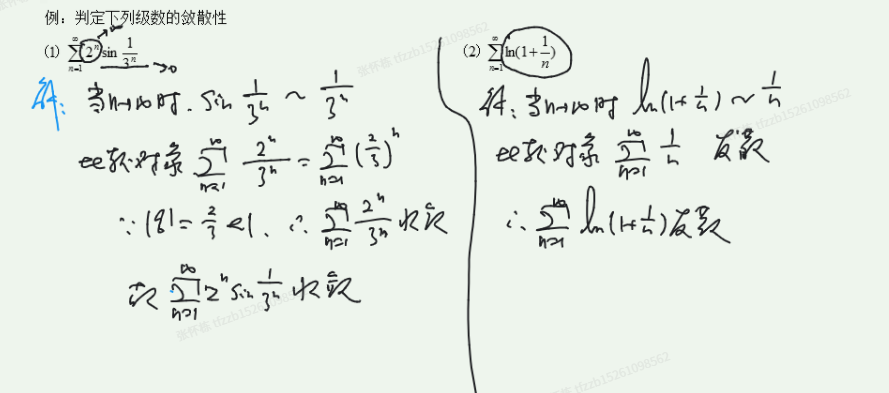 例：判定下列级数的敛散性
(1) $\sum_{n=1}^{\infty} 2^n \sin \frac{1}{3^n}$ →∞ →0
解：当n→∞时. $\sin \frac{1}{3^n} \sim \frac{1}{3^n}$
比较对象 $\sum_{n=1}^{\infty} \frac{2^n}{3^n} = \sum_{n=1}^{\infty} (\frac{2}{3})^n$
∵ $|q| = \frac{2}{3} < 1$、∴ $\sum_{n=1}^{\infty} \frac{2^n}{3^n}$ 收敛
故 $\sum_{n=1}^{\infty} 2^n \sin \frac{1}{3^n}$ 收敛
(2) $\sum_{n=1}^{\infty} \ln(1+\frac{1}{n})$
解：当n→∞时 $\ln(1+\frac{1}{n}) \sim \frac{1}{n}$
比较对象 $\sum_{n=1}^{\infty} \frac{1}{n}$ 发散
∴ $\sum_{n=1}^{\infty} \ln(1+\frac{1}{n})$ 发散
张怀栋 tlzzb15261098562